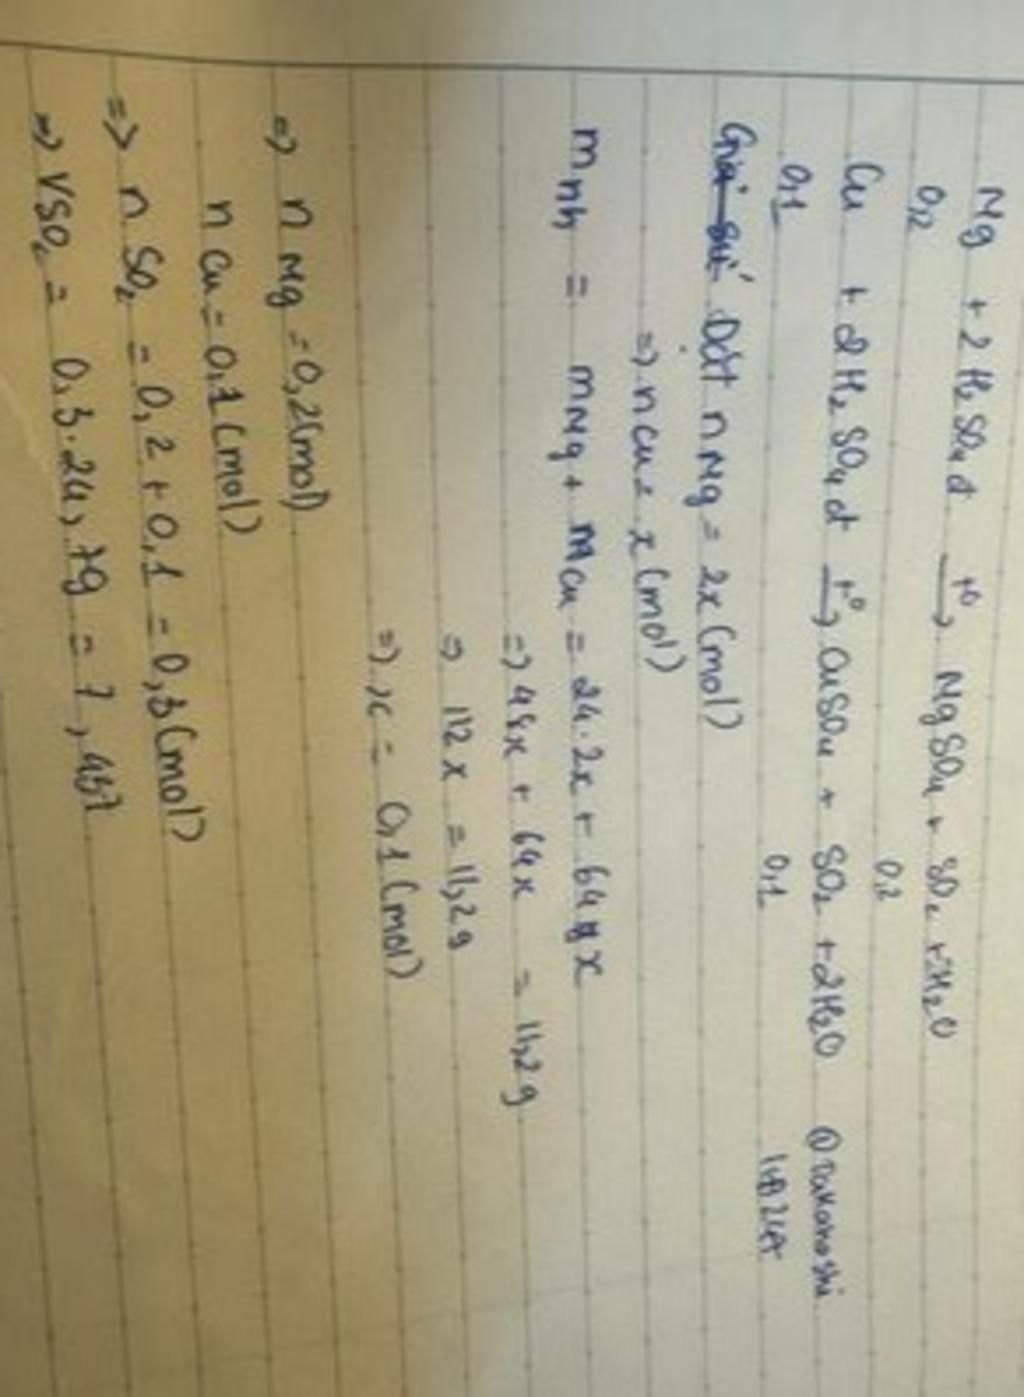 Mg + 2H₂SO₄đ →(t°) MgSO₄ + SO₂ + H₂O
0,2 0,2
Cu + 2H₂SO₄đ →(t°) CuSO₄ + SO₂ + 2H₂O @takahashi
0,1 0,1
Giả sử Đặt nMg = 2x(mol)
=> nCu = x(mol)
mhh = mMg + mCu = 24.2x + 64x
=> 48x + 64x = 11,2g
=> 112x = 11,2g
=> x = 0,1(mol)
=> nMg = 0,2(mol)
nCu = 0,1(mol)
=> nSO₂ = 0,2 + 0,1 = 0,3(mol)
=> VSO₂ = 0,3.24,79 = 7,437